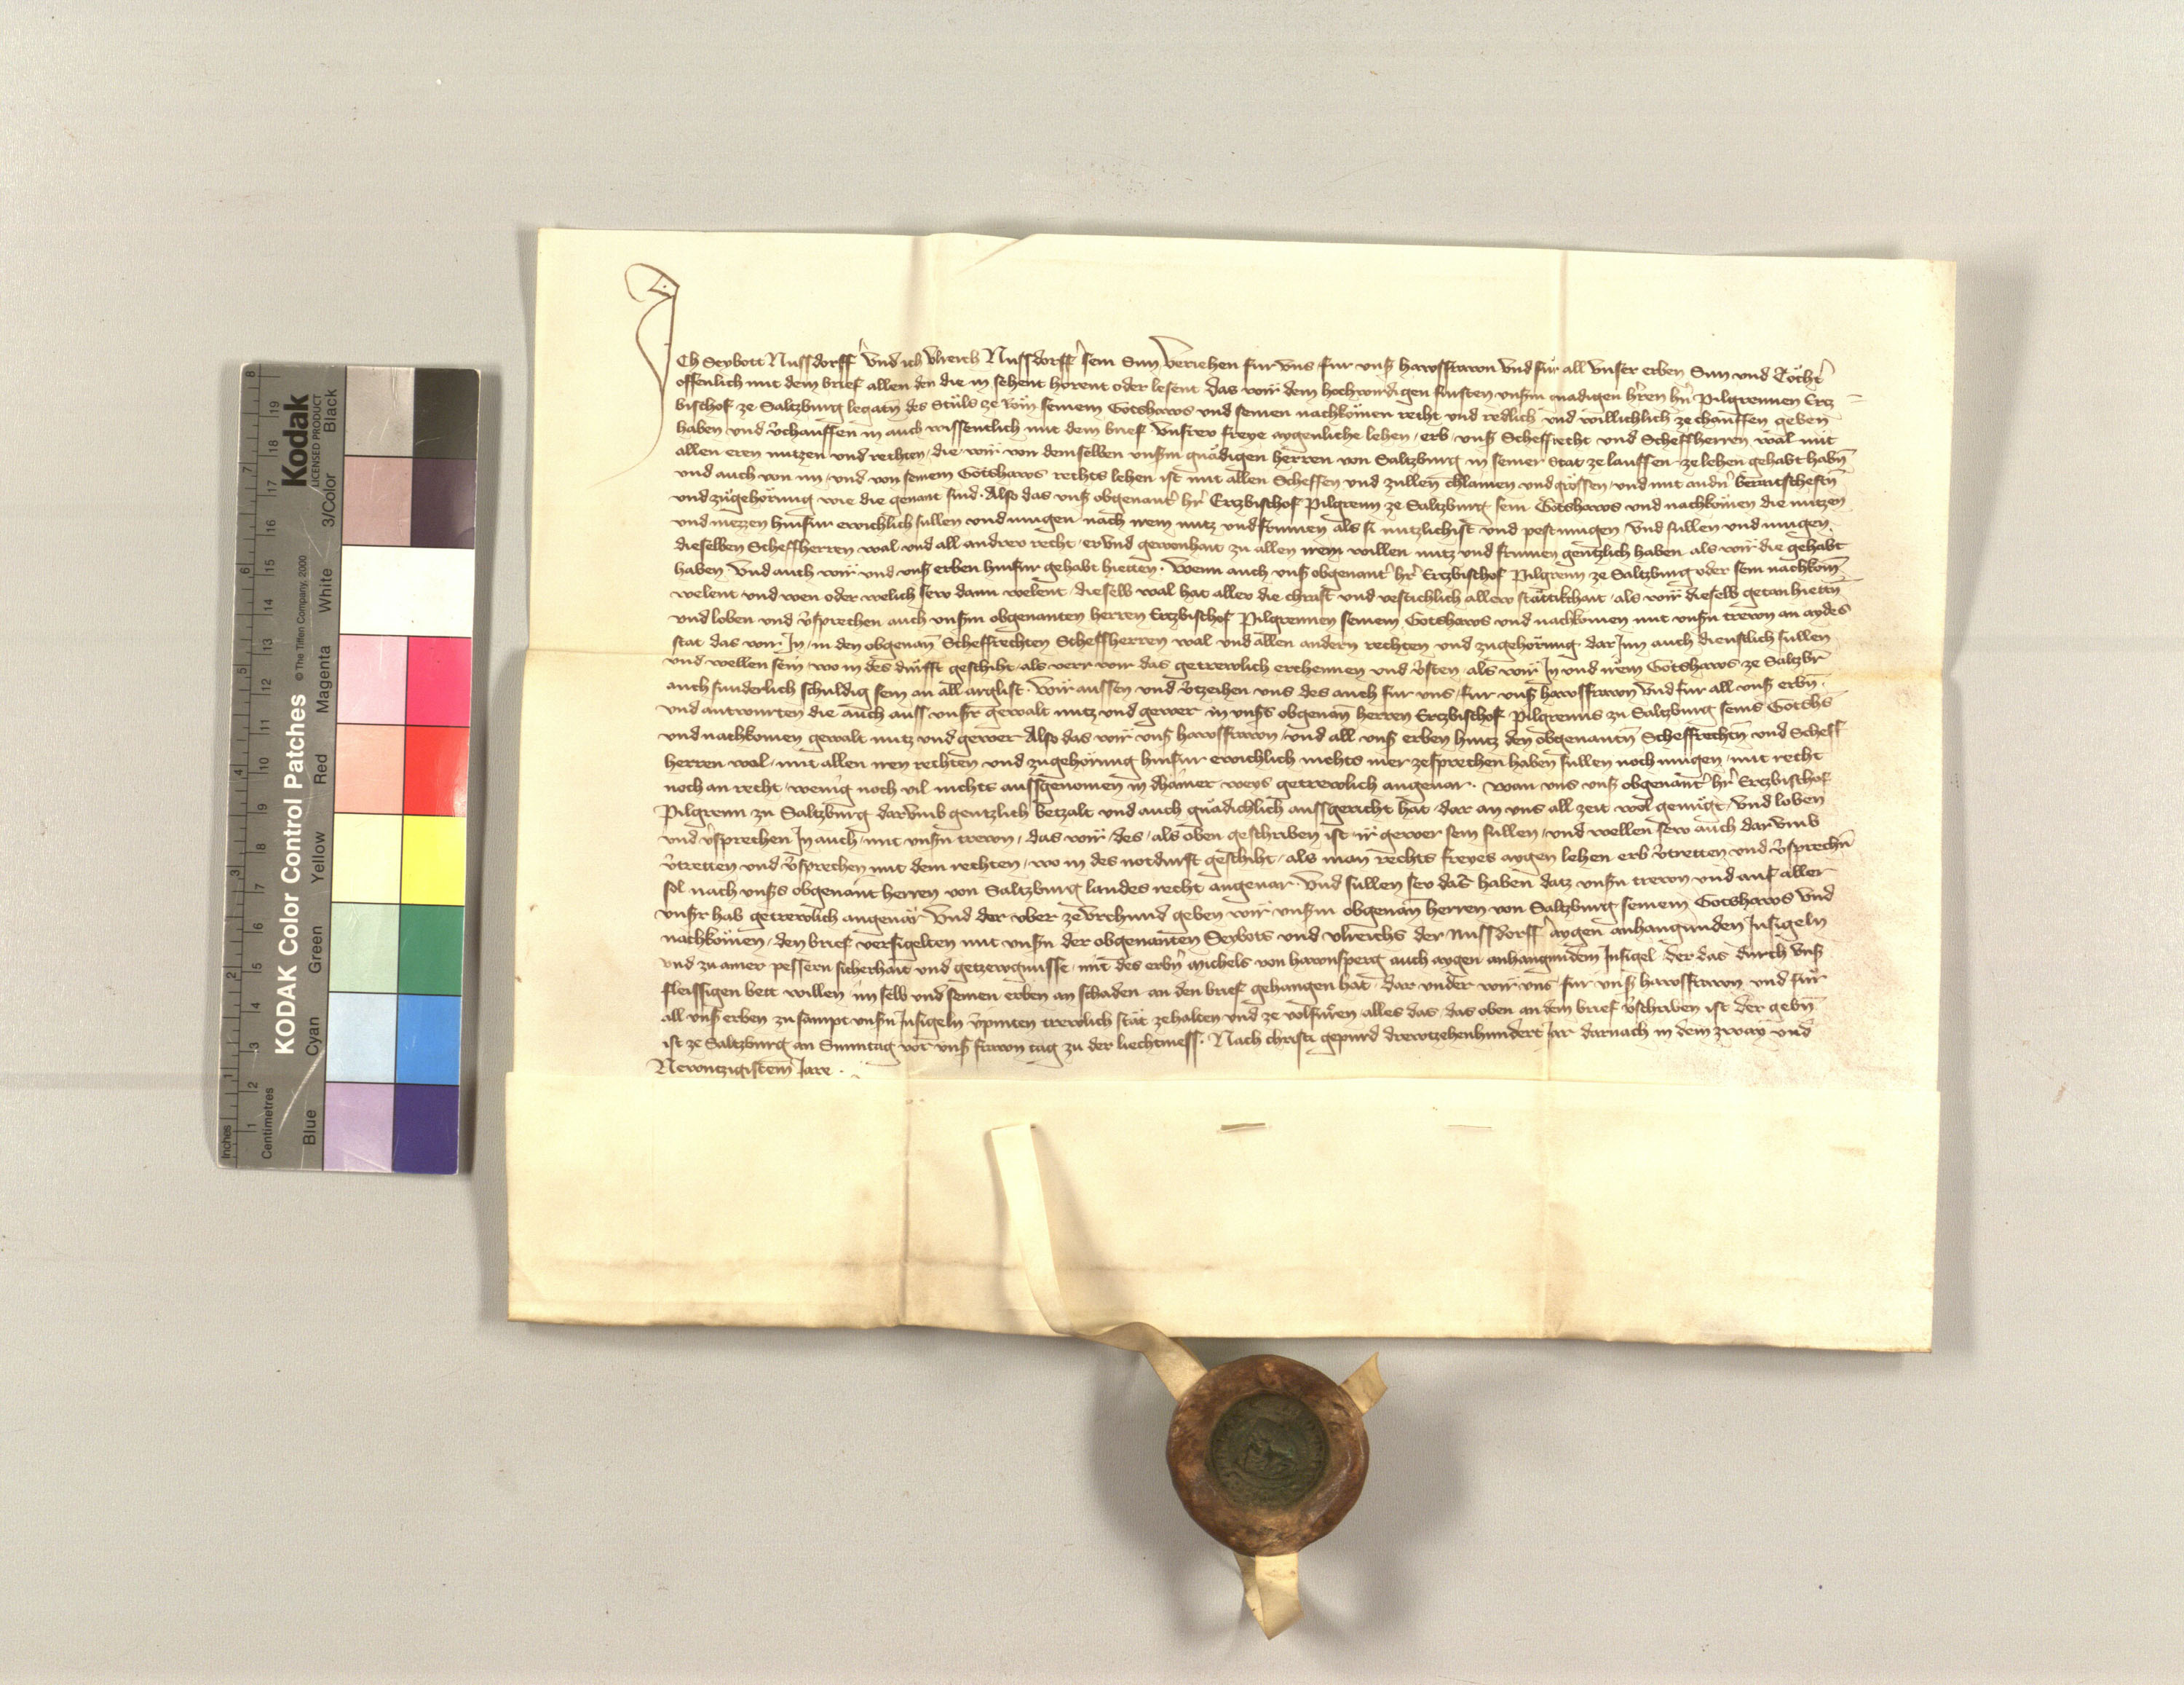 Ich Seybott Nussdorffer und ich Ulreich Nussdorffer sein Sun veriehen fur uns fur unser hawsfrawen und für all unser erben Sun und Töchter
offenlich mit dem brief allen den die in sehent hörent oder lesent das wir dem hochwirdigen fursten unserm gnadigen herren hern Pilgreimen Ertz
bischof ze Saltzburg legaten des Stuls ze Rom seinem Gotshaws und seinen nachkömen recht und redlich und willichlich ze chauffen geben
haben und verchauffen in auch wissentlich mit dem brief unsrew freye aygenliche lehen erb unser Scheffrecht und Scheffherren wal mit
allen eren nutzen und rechten die wir von demselben unserm gnädigen herren von Saltzburg in seiner Stat ze lauffen ze lehen gehabt haben
und auch von im und von seinem Gotshaws rechts lehen ist mit allen Scheffen und zullen chlainen und grössen und mit andern
und zugehörung wie die genant sind. Also das unser obgenanter her Ertzbischof Pilgreim ze Saltzburg sein Gotshaws und nachkömen die nutzen
und niezzen hinfür ewichlich sullen und mugen nach irem nutz und frumen als si nutzlichist und pest mugen und sullen und mugen
dieselben Scheffherren wal und all andrew recht er und gewonhait zu allen irem willen nutz und frumen gentzlich haben als wir die gehabt
haben und auch wir und unser erben hinfur gehabt hietten. Wenn auch unser obgenanter her Ertzbischof Pilgreim ze Saltzburg oder sein nachkomen
welent und wen oder welich sew dann welent dieselb wal hat allew die chraft und vestichlich allew stättikchait als wir dieselb getan hietten
und loben und versprechen auch unserm obgenanten herren Ertzbischof Pilgreimen seinem Gotshaws und nachkömen mit unsern trewen an aydes
stat das wir In in den obgenanten Scheffrechten Scheffherren wal und allen andern rechten und zugehörung dar Inn auch dienstlich sullen
und wellen sein wo in des durfft geschiht als verr wir das getrewlich erchennen und versten als wir In und irem Gotshaws ze Saltzburg
auch sunderlich schuldig sein an all arglist. Wir aussen und vertzeihen uns des auch fur uns fur unser hawsfrawen und fur all unser erben
und antwurten die auch auss unser gewalt nutz und gewer in unsers obgenanten herren Ertzbischof Pilgreims zu Saltzburg seins Gotshaws
und nachkomen gewalt nutz und gewer Also das wir unser hawsfrawen und all unser erben hintz den obgenanten Scheffrechten und Scheff
herren wal mit allen iren rechten und zugehörung hinfur ewichlich nichts mer ze sprechen haben sullen noch mugen mit recht
noch an recht wenig noch vil nichts aussgenomen in dhainer weys getrewlich angever. Wan uns unser obgenanter her Ertzbischof
Pilgreim zu Saltzburg darumb gentzlich betzalt und auch gnädichlich aussgericht hat dar an uns all zeit wol genügt und loben
und versprechen In auch mit unsern trewen das wir des als oben geschriben ist ir gewer sein sullen und wellen sew auch darumb
vertretten und versprechen mit dem rechten wo in des notdurft geschiht als man rechts freyes aygen lehen erb vertretten und versprechen
sol nach unsers obgenant herren von Saltzburg landes recht angever. Und sullen sew das haben datz unsern trewen und auf aller
unser hab getrewlich angever Und dar uber ze urchund geben wir unserm obgenanten herren von Saltzburg seinem Gotshaws und
nachkömen den brief versigelten mit unsern der obgenanten Seybots und Ulreichs der Nussdorffer aygen anhangunden Insigeln
und zu ainer pessern sicherhait und getzewgnusse mit des erbern Michels von hawnsperg auch aygen anhangundem Insigel der das durch unser
fleissigen bett willen im selb und seinen erben an schaden an den brief gehangen hat. Dar under wir uns fur unser hawsfrawen und für
all unser erben zu sampt unsern Insigeln verpinten trewlich stät ze halten und ze volfüren alles das das oben an dem brief verschriben ist der geben
ist ze Saltzburg an Sunntag vor unser frawn tag zu der liechtmess. Nach christi gepurd drewtzehenhundert Jar darnach in dem zway und
Newntzigistem Jare.
KODAK Color Control Patches
Kodak
LICENSED PRODUCT
© The Tiffen Company, 2000
Inches
Centimetres
Blue
Cyan
Green
Yellow
Red
Magenta
White
3/Color
Black
1 2 3 4 5 6 7 8
1 2 3 4 5 6 7 8 9 10 11 12 13 14 15 16 17 18 19